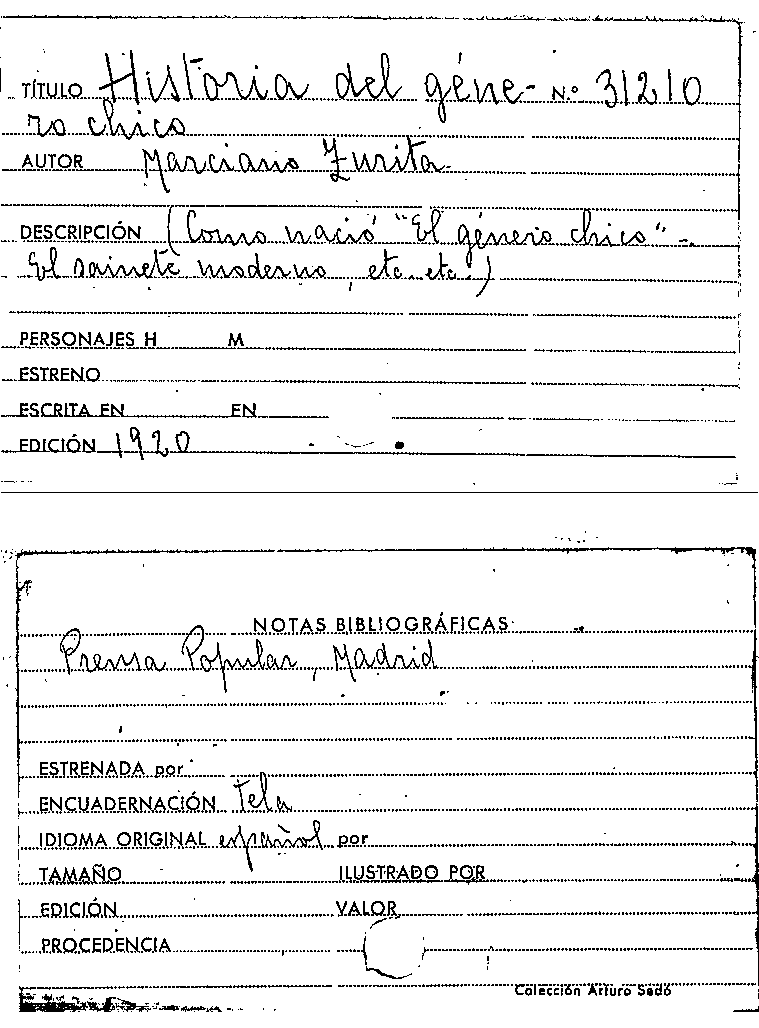 TÍTULO Historia del géne- N.º 31210
ro chico
AUTOR Marciano Zurita.
DESCRIPCIÓN (Como nació "El género chico" -.
El sainete moderno, etc. etc.)
PERSONAJES H M
ESTRENO
ESCRITA EN EN
EDICIÓN 1920
NOTAS BIBLIOGRÁFICAS
Prensa Popular, Madrid
ESTRENADA por
ENCUADERNACIÓN Tela
IDIOMA ORIGINAL español por
TAMAÑO ILUSTRADO POR
EDICIÓN VALOR
PROCEDENCIA
Colección Arturo Sedó